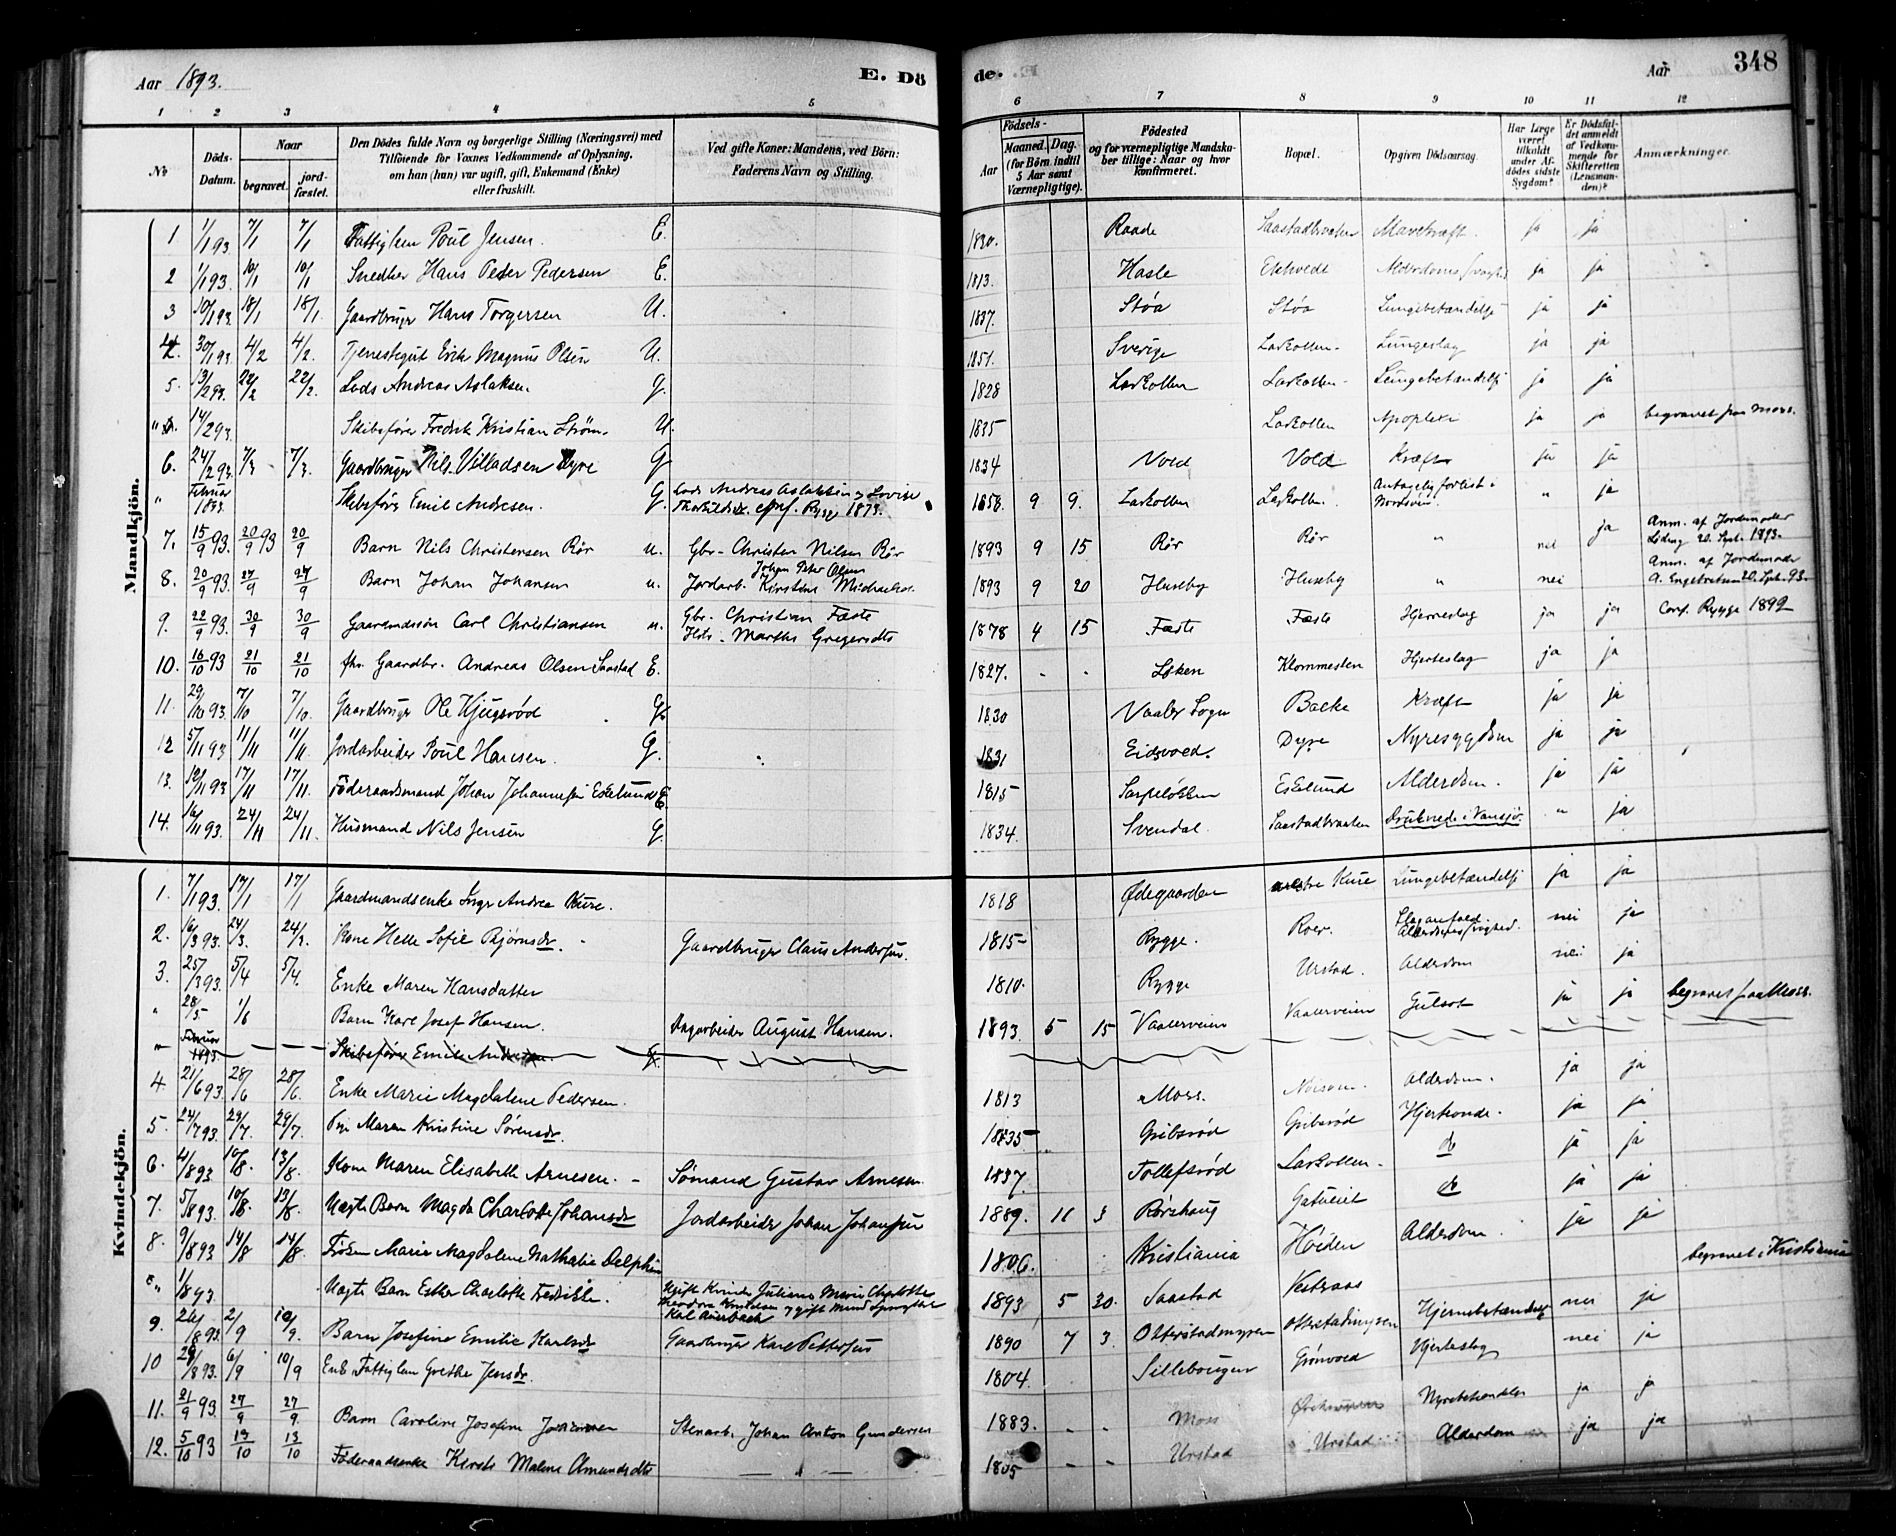 Aar 1893.
E. Dö
de.
Aar
348
1 2 3 4 5 6 7 8 9 10 11 12
No
Döds-Datum.
Naar
begravet.
jord-fæstet.
Den Dödes fulde Navn og borgerlige Stilling (Næringsvei) med
Tilföiende for Voxnes Vedkommende af Oplysning,
om han (hun) var ugift, gift, Enkemand (Enke)
eller fraskilt.
Ved gifte Koner: Mandens, ved Börn:
Faderens Navn og Stilling.
Födsels-
Aar
Maaned. Dag.
(for Börn indtil
5 Aar samt
Værnepligtige).
Födested
og for værnepligtige Mandska-
ber tillige: Naar og hvor
konfirmeret.
Bopæl.
Opgiven Dödsaarsag.
Har Læge
været
tilkaldt
under Af-
dödes sidste
Sygdom?
Er Dödsfal-
det anmeldt
af Vedkom-
mende for
Skifteretten
(Lensman-
den)?
Anmærkninger.
Mandkjön.
1 1/1 93. 7/1 7/1 Fattiglem Poul Jensen. E. 1830. Raade Saastadbraaten Mavekræft. ja ja
2 1/1 93. 10/1 10/1 Snedker Hans Peder Pedersen E. 1813. Hasle Ekhvedt ja ja
3 10/1 93. 18/1 18/1. Gaardbruger Hans Torgersen U. 1837. Støa Støa Lungebetændelse ja ja
4. 30/1 93. 4/2 4/2. Tjenestegut Erik Magnus Olsen U. 1851. Sverige Larkollen. Lungeslag ja ja
5. 13/2 93. 22/2 22/2. Lods Andreas Aslaksen. G. 1828 Larkollen Larkollen Lungebetændelse ja ja
" 14/2 93. Skibsfører Fredrik Kristian Strøm. U. 1835 Larkollen Apoplexi ja ja begravet paa Moss.
6. 24/2 93. 7/3 7/3. Gaardbruger Nils Villadsen Dyre G 1834 Vold Vold Kræft ja ja
" Februar 1893. Skibsfører Emil Andresen. G. Lods Andreas Aslaksen og Lovise Thorkildsdt. conf. Rygge 1873. 1858. 9 9. Larkollen Larkollen. Antagelig forlist i Nordsøen. " ja
7. 15/9 93. 20/9 93 20/9 Barn Nils Christensen Rør u. Gbr. Christen Nilsen Rør 1893 9 15 Rør Rør " nei ja Anm. af Jordemoder 20 Sept. 1893.
8. 20/9 93. 27/9 27/9 Barn Johan Johansen u. Johan Peter Olsen Jordarb. Kirstine 1893 9 20 Huseby Huseby " nei Anm. af Jordemoder A. Engebretsen 20. Sptb. 93.
9. 22/9 93. 30/9 30/9 Gaardmandssøn Carl Christiansen u. Gbr. Christian Fæste Hds. Marthe Gregersdtr 1878 4 15 Fæste Fæste Hjerneslag ja ja Conf. Rygge 1892
10. 16/10 93 21/10 21/10 fhv. Gaardbr. Andreas Olsen Saastad E. 1827. - - Løken Klommesten Hjerteslag ja ja
11. 29/10 93. 7/10 7/10. Gaardbruger Ole Kjugsrød G. 1830 Vaaler Sogn Bakke Kræft ja ja
12 5/11 93 11/11 11/11. Jordarbeider Poul Hansen. G. 1831 Eidsvold. Dyre Nyresygdom ja ja
13. 12/11 93 17/11 17/11. Føderaadsmand Johan Johannesen Eskelund E 1815 Sarpeløkken Eskelund Alderdom. ja ja
14. 16/11 93. 24/11 24/11. Husmand Nils Jensen G. 1834. Svendal. Saastadbraaten Druknede i Vansjø. " ja
Kvindekjön.
1. 7/1 93. 17/1 17/1 Gaardmandsenke Inger Andrea Kure. 1818 Ødegaarden vestre Kure Lungebetændelse ja ja
2. 16/3 93. 24/3. 24/3. Kone Helle Sofie Bjørnsdr. Gaardbruger Claus Andersen. 1815 Rygge. Roer. Slaganfald. Alderdomssvaghed. nei ja
3. 25/3 93. 5/4 5/4. Enke Maren Hansdatter 1810. Rygge Urstad. Alderdom nei ja
" 28/5 1/6 Barn Karl Josef Hansen. Dagarbeider August Hansen. 1893 5 15 Vaalerveien Vaalerveien Gulsot ja ja begravet paa Moss.
" Februar 1893 Skibsfører Emil Andresen. G.
4. 21/6 93. 28/6 28/6. Enke Marie Magdalene Pedersen. 1813 Moss. Alderdom. ja ja
5. 24/7 93. 29/7. 29/7. Pige Maren Kristine Sørensdr. 1835 Gribsrød Gribsrød Hjerteonde. ja ja
6. 4/8 93. 10/8. 13/8. Kone Maren Elisabeth Arnesen. Sømand Gustav Arnesen. 1837. Tollefsrød Larkollen. do ja ja
7. 5/8 93. 10/8. 13/8. Uægte Barn Magda Charlotte Johansdr Jordarbeider Johan Johansen 1889. 11 3 Rørshaug Gatueiet do ja ja
8. 9/8 93 14/8 14/8. Frøken Marie Magdalene Nathalie Delphin 1806. Kristiania Høiden Alderdom. ja ja begravet i Kristiania
" 1/8 93. Uægte Barn Ester Charlotte Fredrikke. Ugift Kvinde Juliane Marie Charlotte Theodora Knudsen og gift Mand Karl Auerbach 1893 5 30. Saastad Vestraas
9. 26/8 93. 2/9 10/9. Barn Josefine Emilie Karlsdr Gaardbruger Karl Pettersen 1890 7 3. Otterstadmyren Otterstadmyren Hjernebetændelse nei ja
10 29/8 93. 6/9 10/9 Enke Fattiglem Grethe Jensdr. 1804. Sillebougen Grønvold Hjerteslag nei ja
11. 21/9 93. 27/9 27/9. Barn Caroline Josefine Johansen Stenarb. Johan Anton Gundersen 1883. - - Moss ja ja
12. 5/10 93 13/10 13/10 Føderaadsenke Kirsti Malene Amundsdtr 1805 - - Urstad Urstad Alderdom ja ja